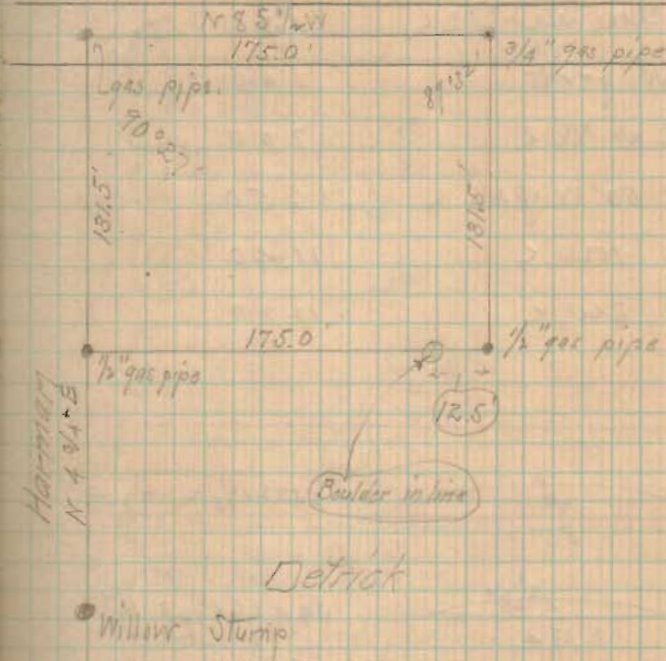 N 85 1/2 W
175.0'
3/4" gas pipe
gas pipe
90° 27'
89° 32'
131.5'
131.5'
175.0'
1/2" gas pipe
1/2" gas pipe
12.5'
Boulder in line
Harman
N 4 3/4 E
Detrick
Willow Stump